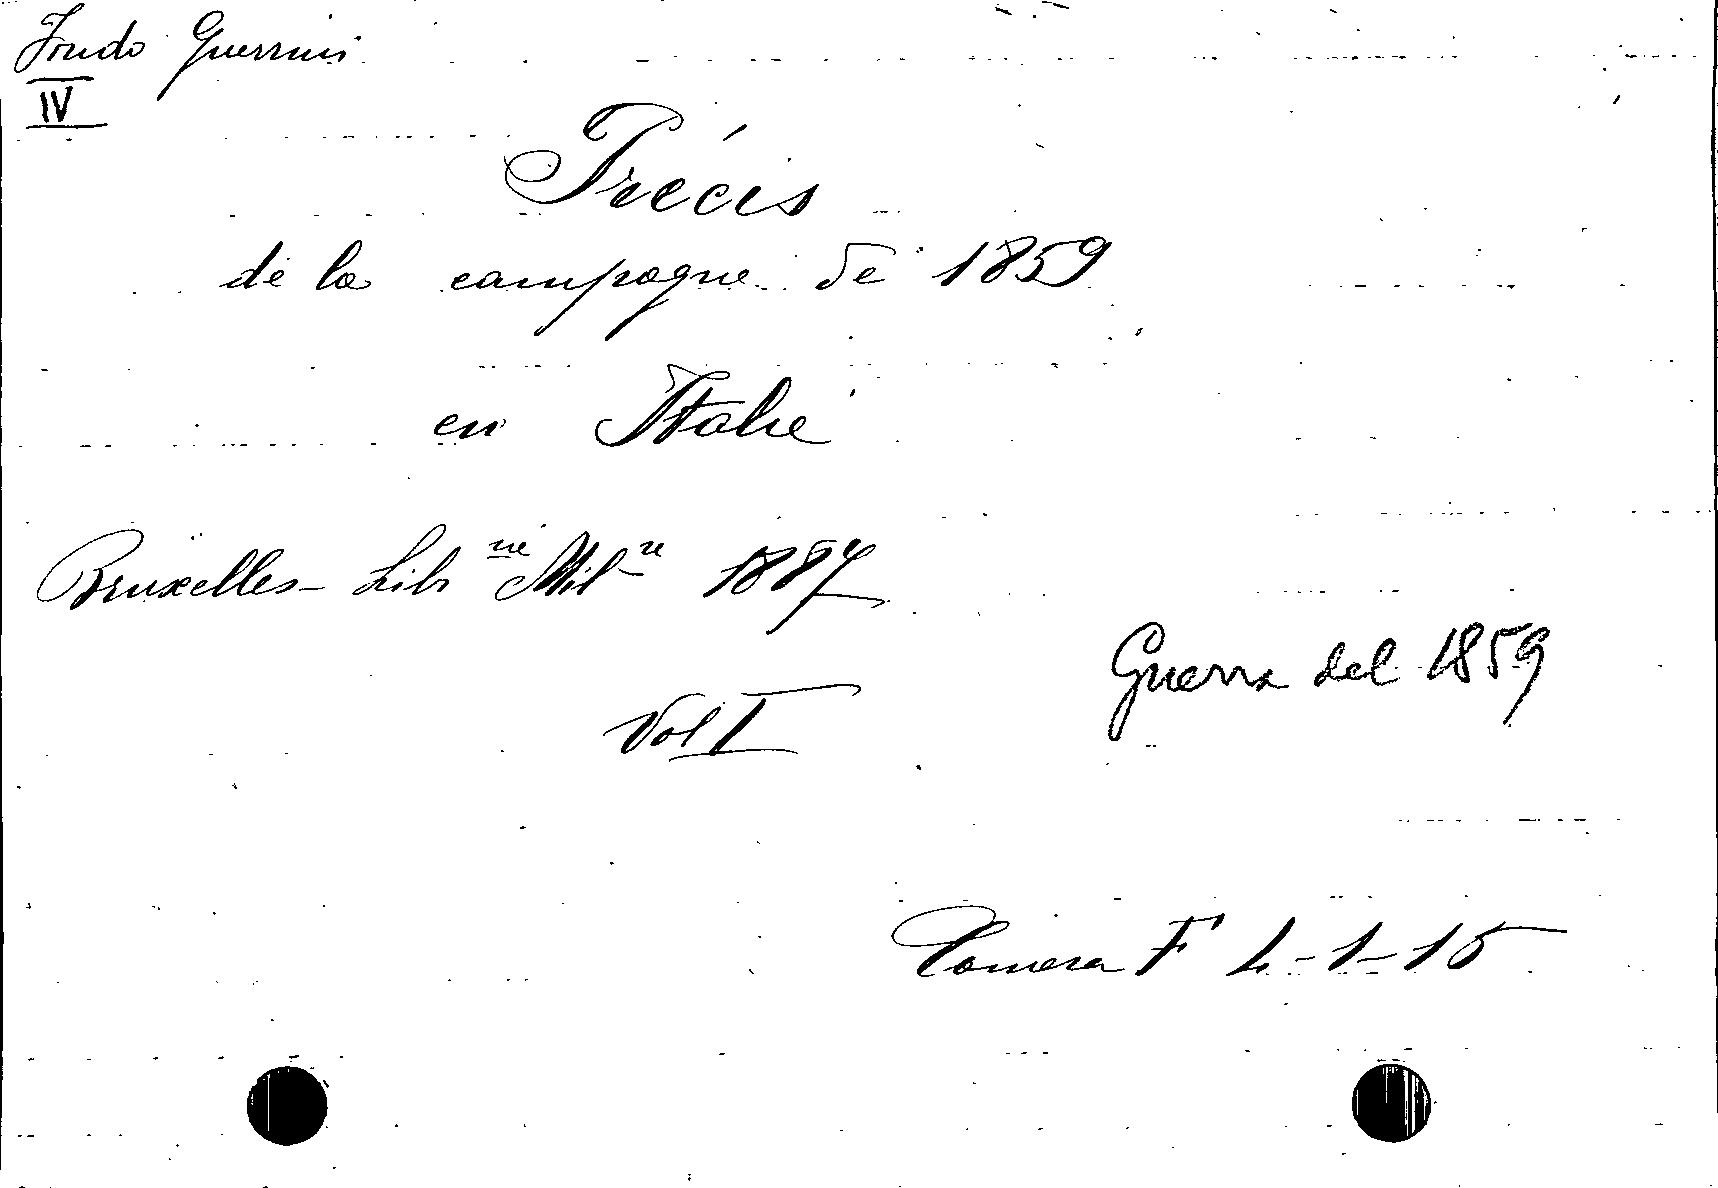 Fondo Guerrini
IV
Précis
de la campagne de 1859
en Italie
Bruxelles - Libr rie Mil re 1887
Vol I
Guerra del 1859
Camera F L-1-15